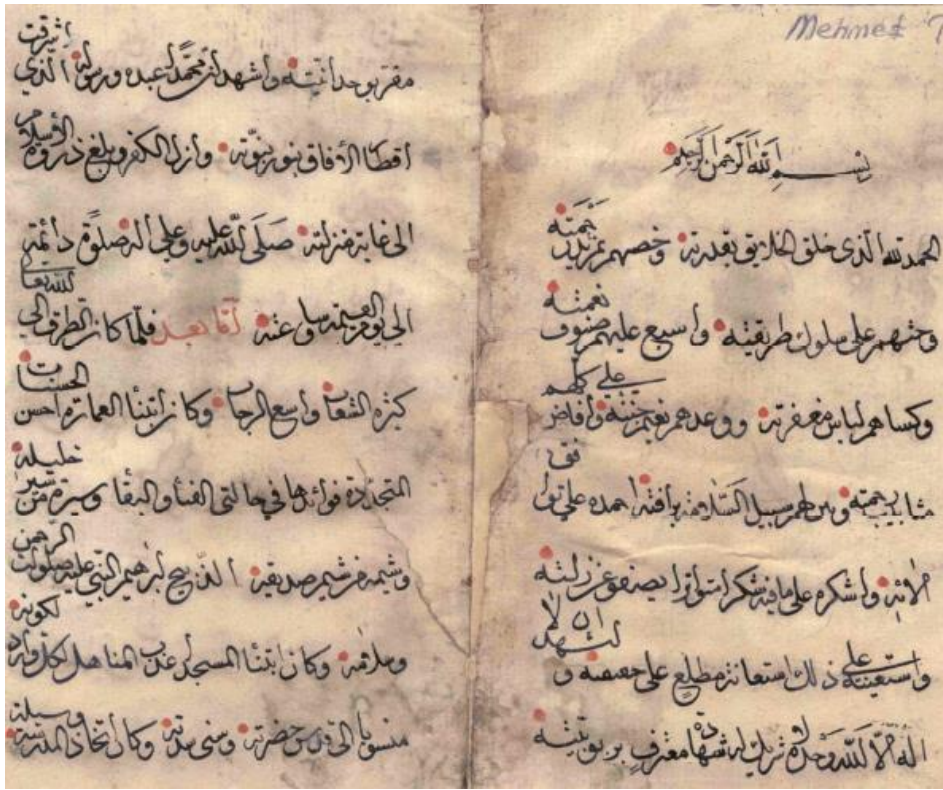 Mehmed
بسم الله الرحمن الرحيم
الحمد لله الذي خلق الخلايق بقدرته وخصهم بمزيد رحمته
وحثهم على سلوك طريقته واسبغ عليهم صنوف نعمته
وكساهم لباس مغفرته ووعدهم نعيم جنته وافاض على كلهم
شابيب رحمته وبين لهم سبيل السلامة برافته احمده على توافق
الائه واشكره على مافيه شكرا متواترا
واستعينه على ذلك استعانة مطلع على ونشهد ان لا
اله الا الله وحده لا شريك له شهادة معترف بربوبيته
مقر بوحدانيته واشهد ان محمدا عبده ورسوله الذي اشرقت
اقطار الافاق بنور نبوته وازل الكفر وبلغ ذروة الاسلام
الى غاية منزلته صلى الله عليه وعلى اله صلوة دائمة
الى يوم القيمة وساعته اما بعد فلما كان الطرق الى الله تعالى
كثيرة الشعاب واسع الرحاب وكان ابتنا العمارة احسن الحسنات
المتجددة فوائدها في حالتي الفنا والبقا وسيرة من سير خليله
وشيمة من شيم صديقه الذبيح ابرهيم النبي عليه صلوات الرحمن
وسلامه وكان ابتنا المسجد اعذب المناهل لكل وارد لكونه
منسوبا الى قدس حضرته وسنى سدته وكان اتخاذ المدرسة وسيلة